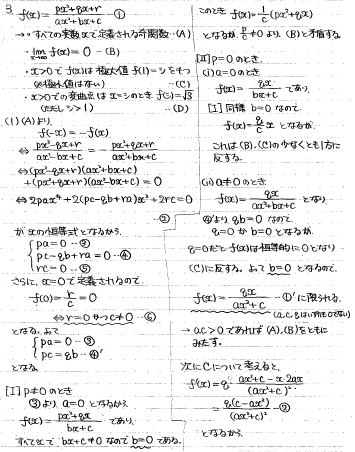 3. f(x) = (px²+qx+r)/(ax²+bx+c) …①
→・すべての実数xで定義される奇関数…(A)
・lim_{x→∞} f(x) = 0 …(B)
・x>0で f(x)は極大値 f(1)= をもつ
…(C)
・x>0での変曲点は x= のとき f( )=√3
…(D)
(1) (A)より、
f(-x) = -f(x)
⇔ (px²-qx+r)/(ax²-bx+c) = -(px²+qx+r)/(ax²+bx+c)
⇔ (px²-qx+r)(ax²+bx+c)
+(px²+qx+r)(ax²-bx+c) = 0
⇔ 2pax⁴+2(pc-qb+ra)x²+2rc=0
…②
がxの恒等式となるから、
pa=0 …③
pc-qb+ra=0 …④
rc=0 …⑤
さらに、x=0で定義されるので、
f(0) = r/c = 0
⇔ r=0 かつ c≠0 …⑥
となる。よって
pa=0 …③
pc=qb …④'
となる。
[I] p≠0のとき
③より a=0 となるから
f(x) = (px²+qx)/(bx+c) であり、
すべてのxで bx+c≠0 なので b=0 である。
このとき f(x) = 1/c (px²+qx)
となるが、p/c≠0より、(B)と矛盾する。
[II] p=0のとき、
(i) a=0のとき
f(x) = qx/(bx+c) であり、
[I]同様 b=0なので
f(x) = q/c x となるが、
これは(B),(C)の少なくとも1方に
反する。
(ii) a≠0のとき
f(x) = qx/(ax²+bx+c) となり、
④'より qb=0 なので、
q=0 か b=0 となるが、
q=0だと f(x)は恒等的に0となり
(C)に反する。よって b=0 となるので、
f(x) = qx/(ax²+c) …①' に限られる。
(a,c,qはいずれも0でない)
→ ac>0であれば(A),(B)をともに
みたす。
次にCについて考えると、
f'(x) = q・(ax²+c-x・2ax)/(ax²+c)²
= q(c-ax²)/(ax²+c)² …⑦
となるから、